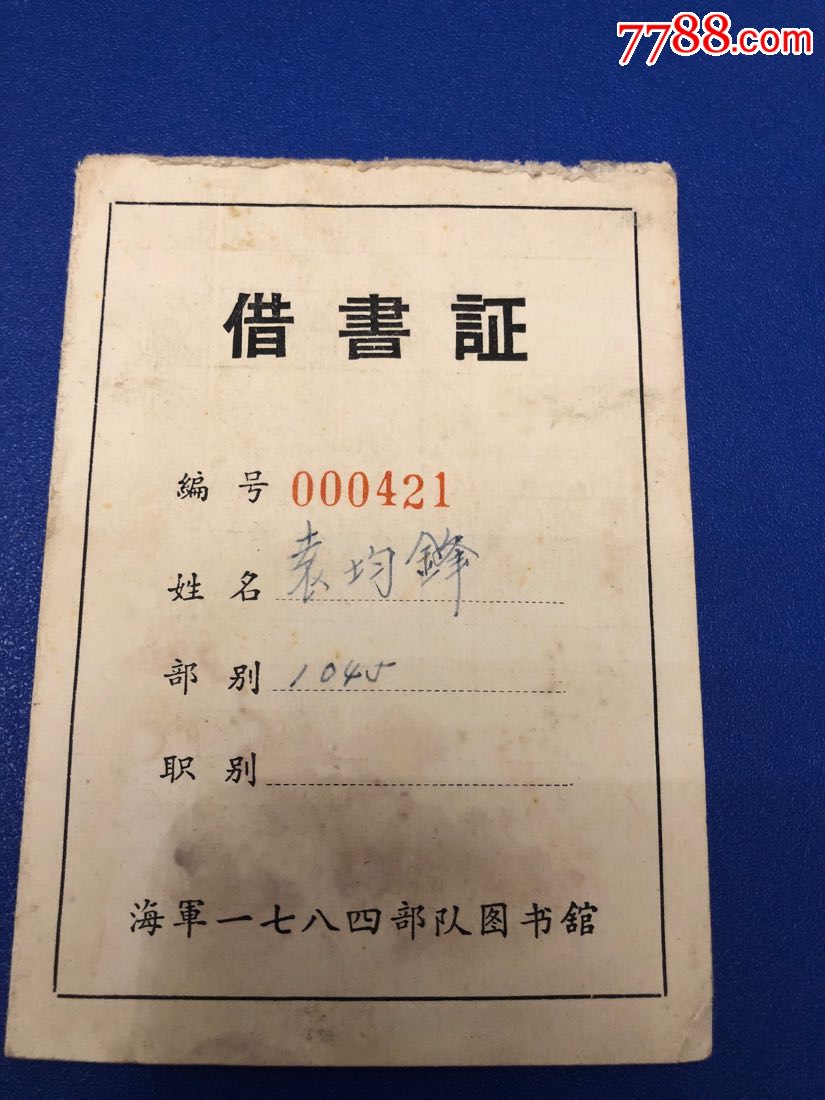 7788.com
借書証
編号 000421
姓名 袁均鋒
部别 1045
职别
海軍一七八四部队图书舘